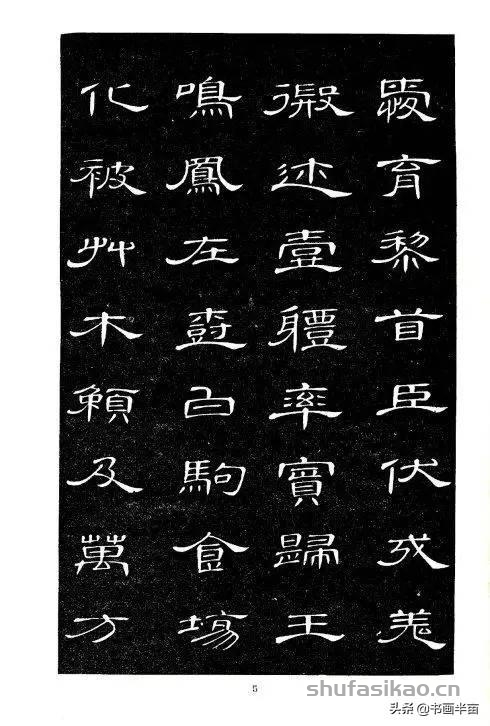 愛育黎首臣伏戎羌
徦迩壹體率賓歸王
鳴鳳在尌白駒食場
化被艸木賴及萬方
5
shufasikao.cn
头条 @书画半亩